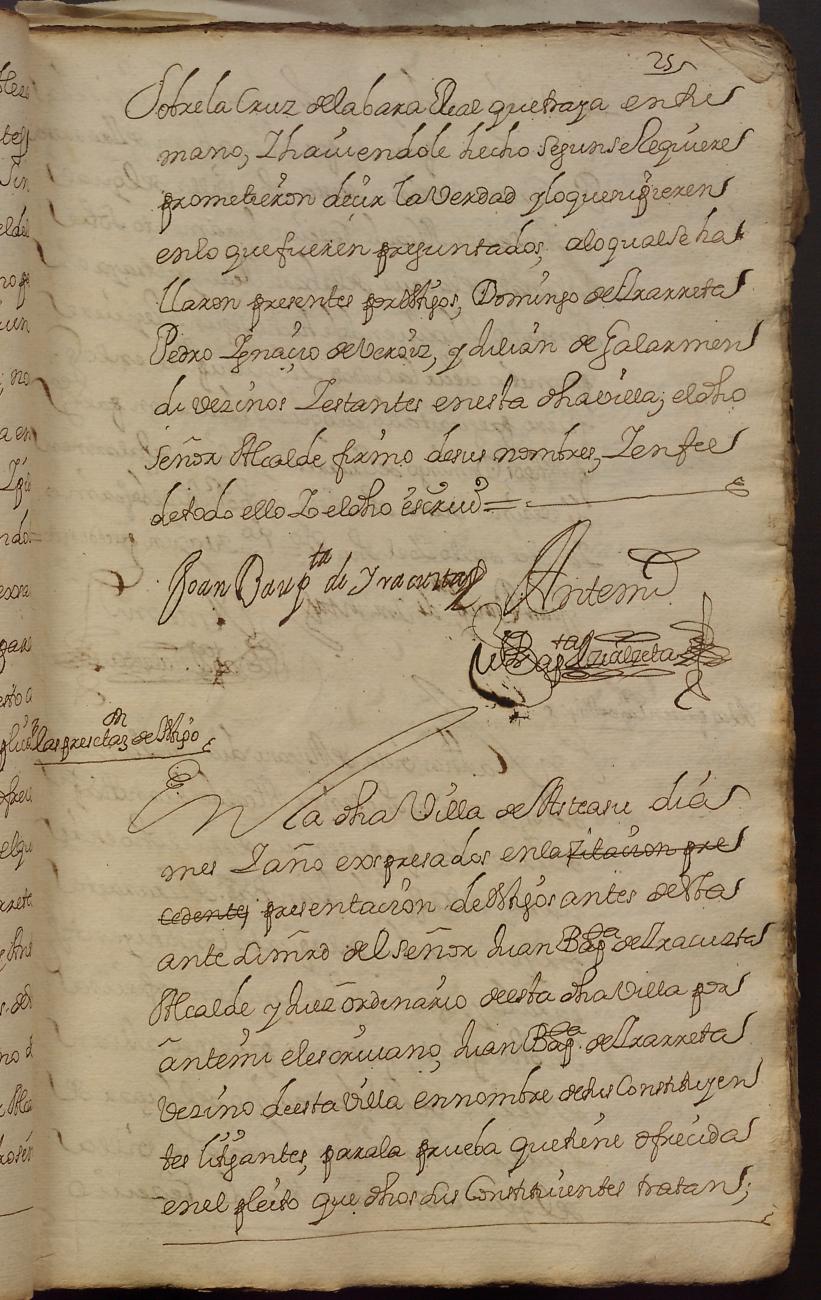 25
Sobre la Cruz de la bara Real que traya en su
mano, I haviendole hecho segun se Requiere
prometieron decir la Verdad y lo que supieren
en lo que fueren preguntados, a lo qual se ha
llaron presentes por tt̃igos, Domingo de Irarreta
Pedro Ignaçio de Veroiz, y Julian de Galarmen
di vezinos I estantes en esta dha villa; el dho
señor Alcalde firmo de sus nombres, I en fee
de todo ello Io el dho escriuº =
Joan Baupta de Yracusta
Antemi
Bapta
las presctaz.on de tt̃igo
En la dha Villa de Asteasu dia
mes I año exspresados en la zitacion pre
cedente, presentacion de tt̃igos antes de esta
ante su mrd del señor Juan Bapta de Iracusta
Alcalde y Juez ordinario de esta dha Villa por
ante mi el escriuano, Juan Bapta de Irarreta
vezino de esta Villa en nombre de sus Constituyen
tes litigantes, para la prueba que tiene ofrecida
en el pleito que dhos sus Constituientes tratan;